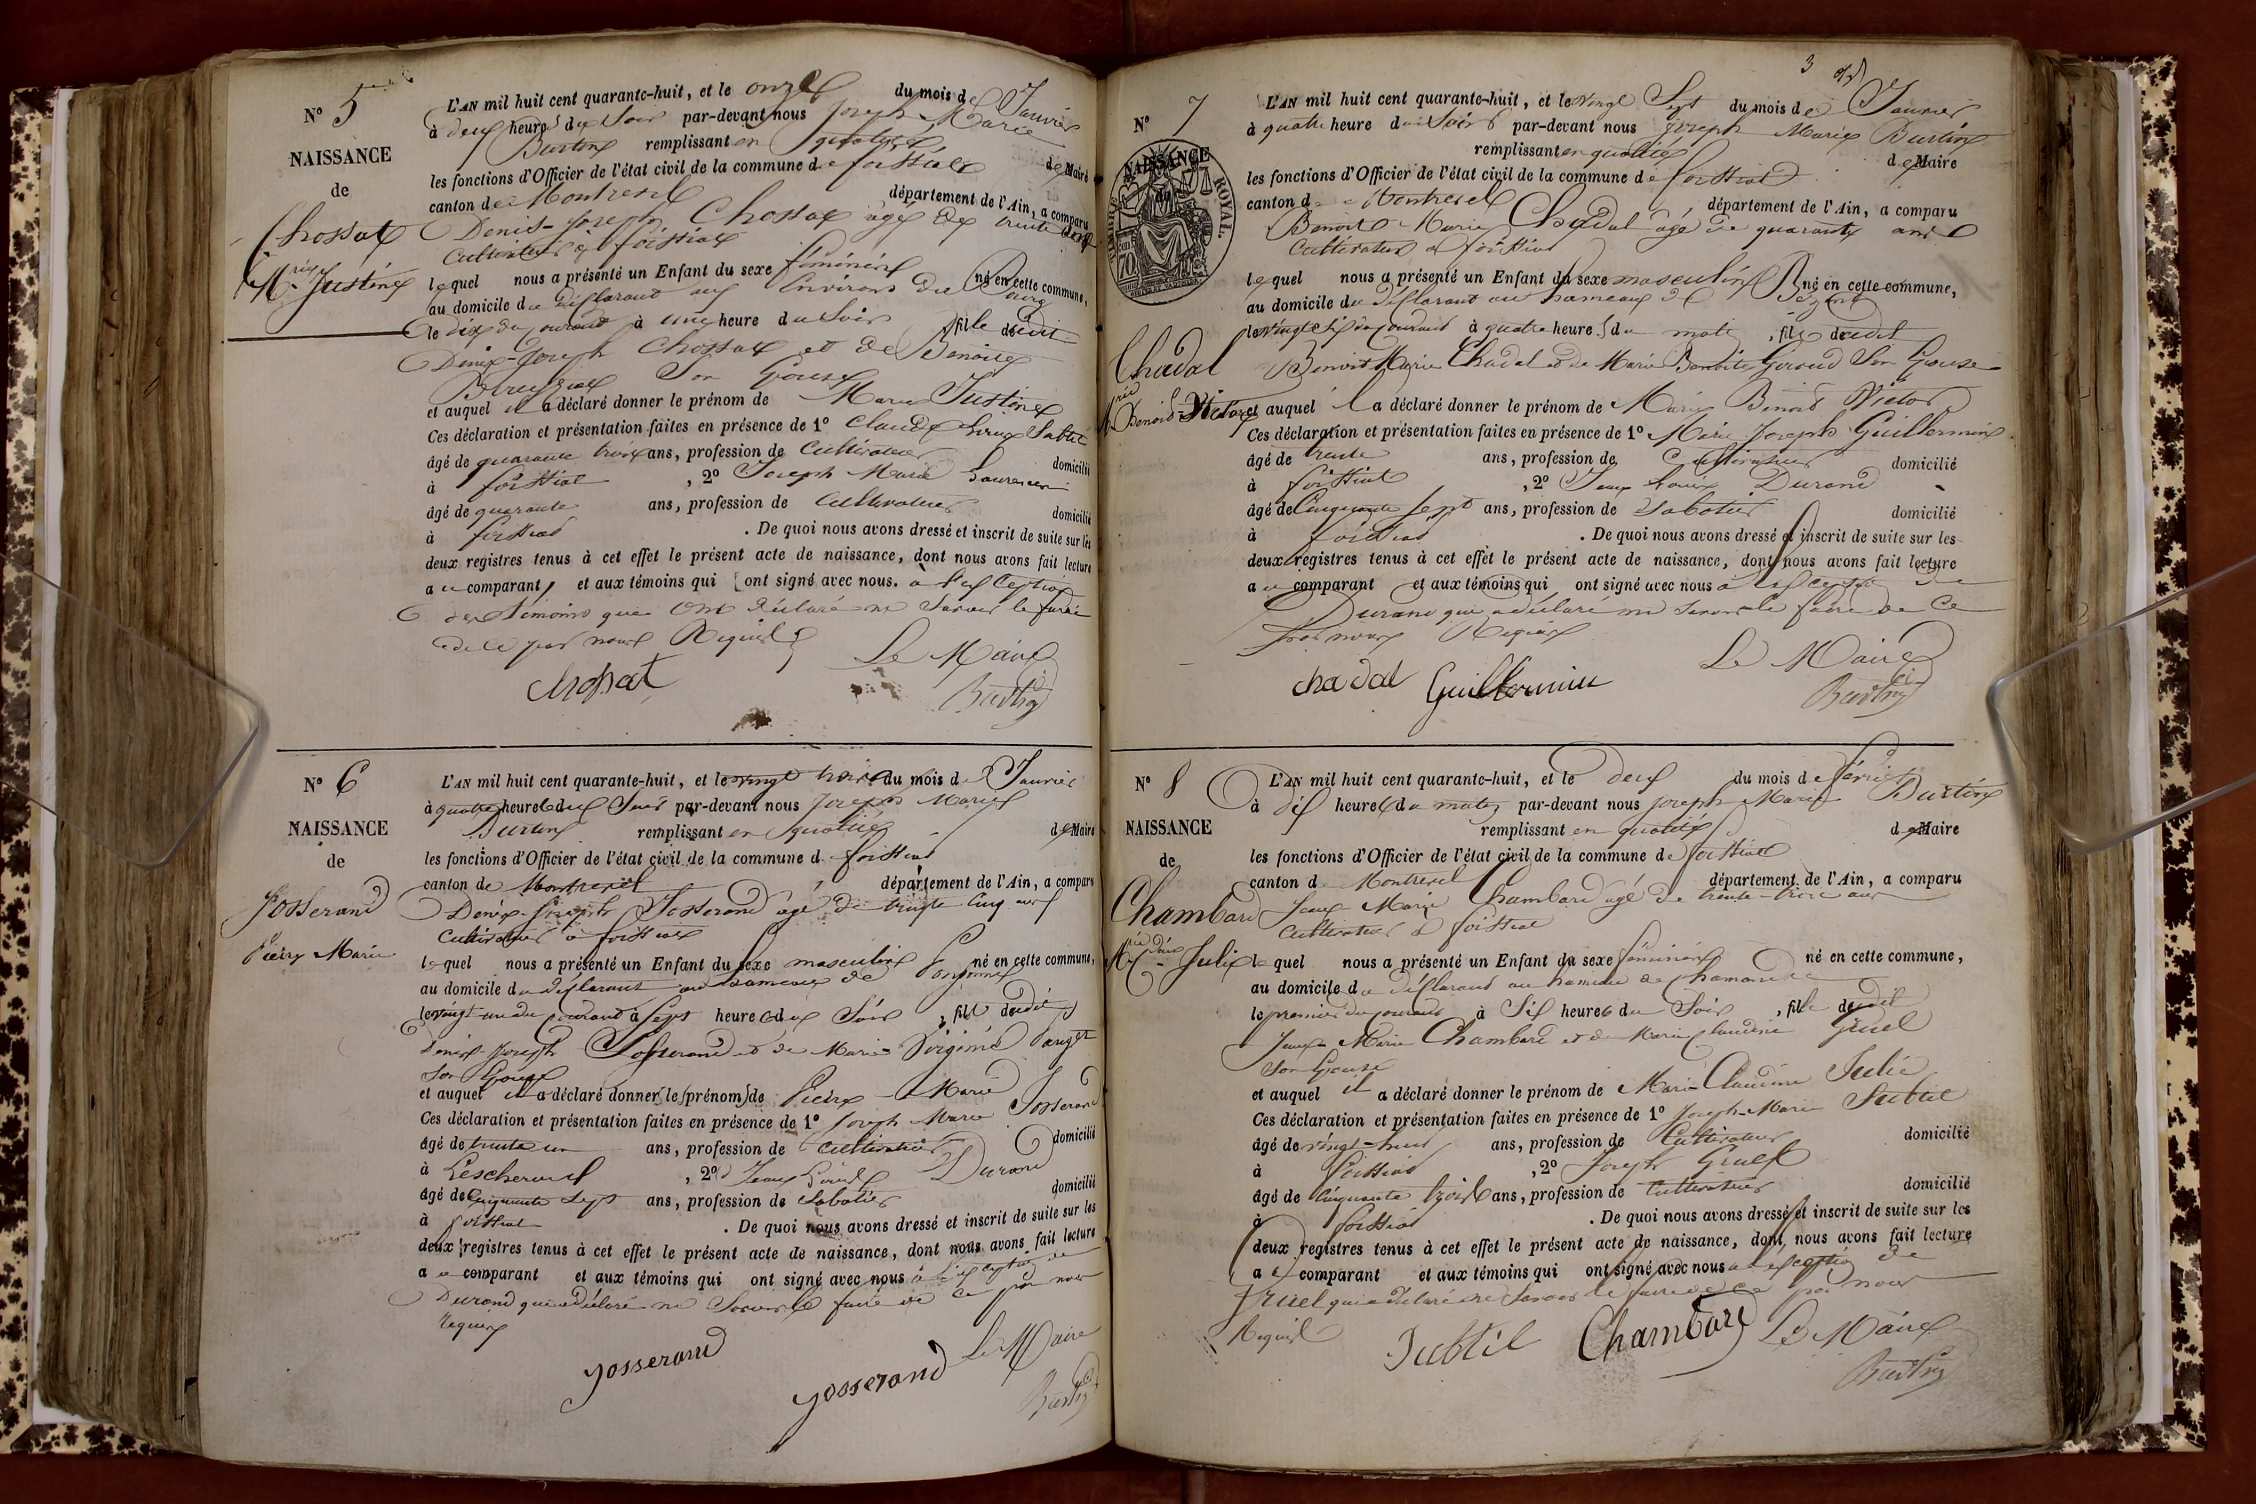 N° 5
NAISSANCE
de
Chossat
Mie Justine
L'AN mil huit cent quarante-huit, et le onze du mois de Janvier
à deux heures du Soir par-devant nous Joseph Marie
Burtin remplissant en qualité de Maire
les fonctions d'Officier de l'état civil de la commune de foissiat
canton de Montrevel département de l'Ain, a comparu
Denis-Joseph Chossat âgé de trente
Cultivateur à foissiat
lequel nous a présenté un Enfant du sexe féminin né en cette commune,
au domicile du déclarant aux Environs du Bourg
le dix du courant à une heure du Soir fille dudit
Denis-Joseph Chossat et de Benoite
Son Epouse
et auquel il a déclaré donner le prénom de Marie Justine
Ces déclaration et présentation faites en présence de 1° Claude Subtil
âgé de quarante trois ans, profession de Cultivateur domicilié
à foissiat , 2° Joseph Marie Laurencin
âgé de quarante ans, profession de Cultivateur domicilié
à foissiat . De quoi nous avons dressé et inscrit de suite sur les
deux registres tenus à cet effet le présent acte de naissance, dont nous avons fait lecture
au comparant, et aux témoins qui ont signé avec nous. a l'exception
des témoins qui ont déclaré ne Savoir le faire
de ce par nous Requis
Le Maire
chossat Burtin
N° 6
NAISSANCE
de
Josserand
Pierre Marie
L'AN mil huit cent quarante-huit, et le vingt trois du mois de Janvier
à quatre heures du Soir par-devant nous Joseph Marie
Burtin remplissant en qualité de Maire
les fonctions d'Officier de l'état civil de la commune d foissiat
canton de Montrevel département de l'Ain, a comparu
Denis-Joseph Josserand âgé de trente Cinq ans
Cultivateur à foissiat
lequel nous a présenté un Enfant du sexe masculin né en cette commune,
au domicile du déclarant au hameau de
le vingt un du Courant à Sept heures du Soir , fils dudit
Denis-Joseph Josserand et de Marie Virginie
Son Epouse
et auquel il a déclaré donner le prénom de Pierre Marie
Ces déclaration et présentation faites en présence de 1° Joseph Marie Josserand
âgé de trente un ans, profession de Cultivateur domicilié
à Lescheroux , 2° Jean Louis Durand
âgé de Cinquante Sept ans, profession de Sabotier domicilié
à foissiat . De quoi nous avons dressé et inscrit de suite sur les
deux registres tenus à cet effet le présent acte de naissance, dont nous avons fait lecture
au comparant et aux témoins qui ont signé avec nous à l'exception de
Durand qui a déclaré ne Savoir le faire de ce par nous
Requis
Le Maire
Josserand Josserand Burtin
3
N° 7
NAISSANCE
TIMBRE ROYAL
Chadal
Mie Benoit-Victor
L'AN mil huit cent quarante-huit, et le vingt Sept du mois de Janvier
à quatre heure du Soir par-devant nous Joseph Marie Burtin
remplissant en qualité de Maire
les fonctions d'Officier de l'état civil de la commune de foissiat
canton d Montrevel département de l'Ain, a comparu
Benoit Marie Chadal âgé de quarante ans
Cultivateur à foissiat
lequel nous a présenté un Enfant du sexe masculin né en cette commune,
au domicile du déclarant au hameau de
le vingt Six du Courant à quatre heures du matin , fils dudit
Benoit Marie Chadal et de Marie Benoite Giroud Son Epouse
et auquel il a déclaré donner le prénom de Marie Benoit Victor
Ces déclaration et présentation faites en présence de 1° Marie Joseph Guillermin
âgé de trente ans, profession de Cultivateur domicilié
à foissiat , 2° Jean Louis Durand
âgé de Cinquante Sept ans, profession de Sabotier domicilié
à foissiat . De quoi nous avons dressé et inscrit de suite sur les
deux registres tenus à cet effet le présent acte de naissance, dont nous avons fait lecture
au comparant et aux témoins qui ont signé avec nous à l'exception de
Durand qui a déclaré ne Savoir le faire de Ce
par nous Requis
Le Maire
chadal Guillermin Burtin
N° 8
NAISSANCE
de
Chambard
Mie Julie
L'AN mil huit cent quarante-huit, et le deux du mois de février
à dix heures du matin par-devant nous Joseph Marie Burtin
remplissant en qualité de Maire
les fonctions d'Officier de l'état civil de la commune de foissiat
canton d Montrevel département de l'Ain, a comparu
Jean Marie Chambard âgé de trente-trois ans
Cultivateur à foissiat
lequel nous a présenté un Enfant du sexe féminin né en cette commune,
au domicile du déclarant au hameau de
le premier du courant à Six heures du Soir , fille dudit
Jean Marie Chambard et de Marie Claudine Gruel
Son Epouse
et auquel il a déclaré donner le prénom de Marie Claudine Julie
Ces déclaration et présentation faites en présence de 1° Joseph-Marie Subtil
âgé de vingt-huit ans, profession de Cultivateur domicilié
à foissiat , 2° Joseph Gruel
âgé de Cinquante trois ans, profession de Cultivateur domicilié
à foissiat . De quoi nous avons dressé et inscrit de suite sur les
deux registres tenus à cet effet le présent acte de naissance, dont nous avons fait lecture
au comparant et aux témoins qui ont signé avec nous a l'exception de
Gruel qui a déclaré ne Savoir le faire de ce par nous
Requis
Subtil Chambard Le Maire
Burtin